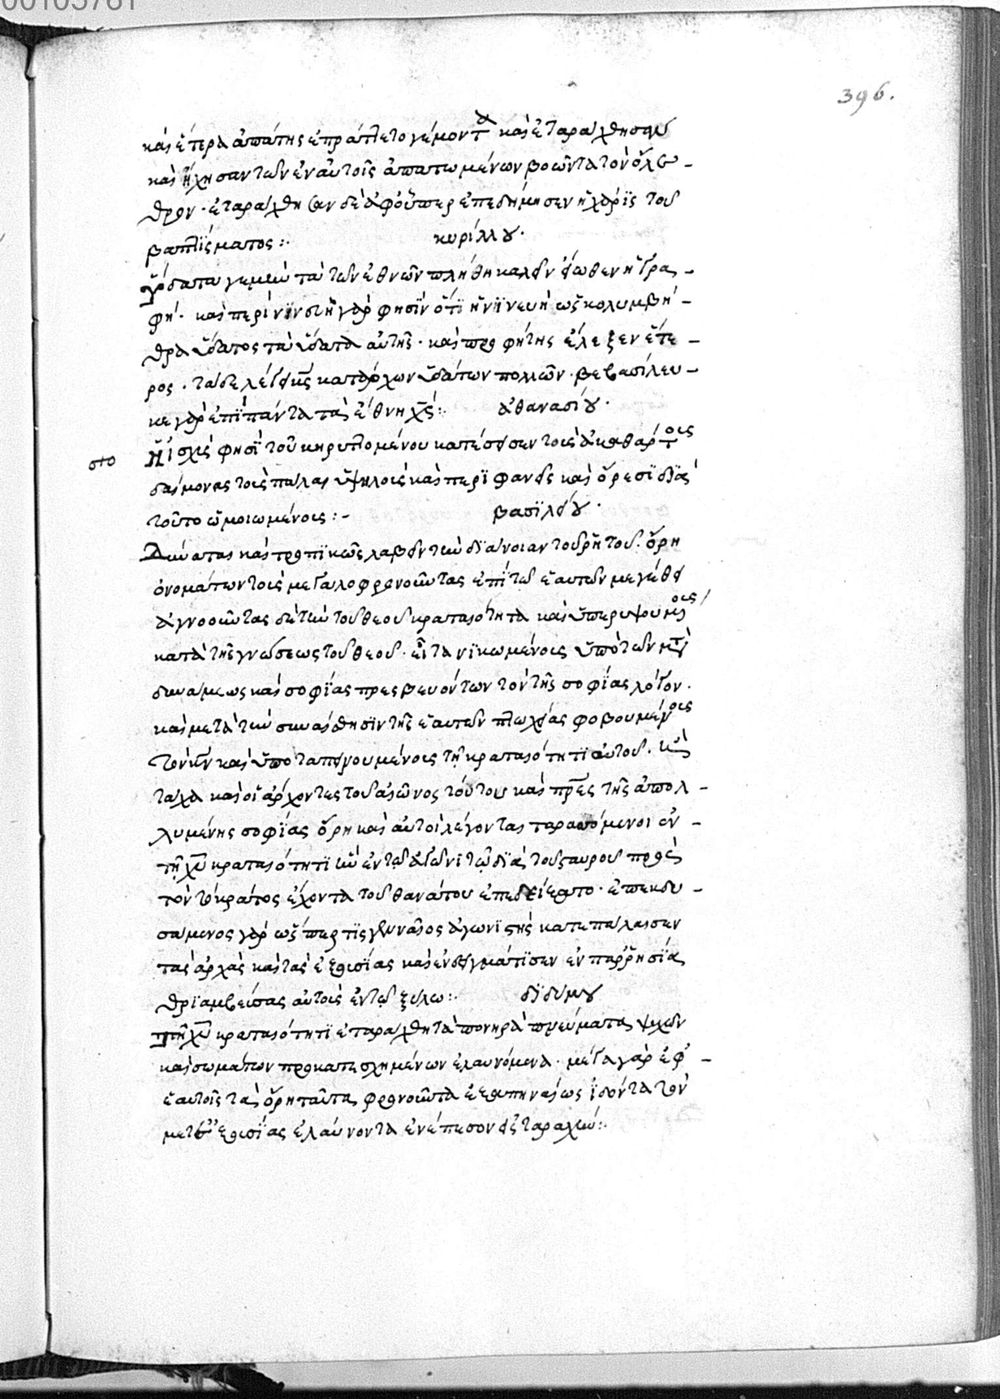 00105781
396.
καὶ ἕτερα ἀπάτης ἐπράττετο γέμοντα καὶ ἐταράχθησαν
καὶ ἤχησαν τῶν ἐν αὐτοῖς ἀπατωμένων βοῶντα τὸν ὄλε-
θρον· ἐταράχθησαν δὲ ἀφ' οὗπερ ἐπεδήμησεν ἡ χάρις τοῦ
βαπτίσματος:· κυρίλλου·
ὕδατα γεμὴν τὰ τῶν ἐθνῶν πλήθη καλεῖν εἴωθεν ἡ γρα-
φή· καὶ περὶ νινευὴ γάρ φησιν ὅτι ἡ νινευὴ ὡς κολυμβή-
θρα ὕδατος τὰ ὕδατα αὐτῆς· καὶ προφήτης ἔλεξεν ἕτε-
ρος· τάδε λέγει κς κατάρχων ὑδάτων πολλῶν· βεβασίλευ-
κε γὰρ ἐπὶ πάντα τὰ ἔθνη χς:· ἀθανασίου·
ἡ ἰσχὺς φησὶ τοῦ κηρυττομένου κατέσεισεν τοὺς ἀκαθάρτους
δαίμονας τοὺς πάλαι ὑψηλοὺς καὶ περιφανεῖς καὶ ὄρεσι διὰ
τοῦτο ὡμοιωμένους:- βασιλείου·
Δύναται καὶ τροπικῶς λαβεῖν τὴν διάνοιαν τοῦ ῥητοῦ. ὄρη
ὀνομάζων τοὺς μεγαλοφρονοῦντας ἐπὶ τῶ ἑαυτῶν μεγέθει
ἀγνοοῦντας δὲ τὴν τοῦ θεοῦ κραταιότητα καὶ ὑπερυψουμένους
κατὰ τῆς γνώσεως τοῦ θεοῦ· εἶτα νικωμένους ὑπὸ τῶν μετὰ
δυνάμεως καὶ σοφίας πρεσβευόντων τὸν τῆς σοφίας λόγον.
καὶ μετὰ τὴν συναίσθησιν τῆς ἑαυτῶν πτωχείας φοβουμένους
τὸν κν καὶ ὑποταπεινουμένους τῇ κραταιότητι αὐτοῦ. καὶ
τάχα καὶ οἱ ἄρχοντες τοῦ αἰῶνος τούτου καὶ πρες τῆς ἀπολ-
λυμένης σοφίας ὄρη καὶ αὐτοὶ λέγονται ταρασσόμενοι ἐν
τῇ χυ κραταιότητι ἣν ἐν τῷ ἀγῶνι τῷ διὰ τοῦ σταυροῦ πρὸς
τὸν τὸ κράτος ἔχοντα τοῦ θανάτου ἐπεδείξατο· ἀπεκδυ-
σάμενος γὰρ ὥσπερ τις γενναῖος ἀγωνιστὴς κατεπάλαισεν
τὰς ἀρχὰς καὶ τὰς ἐξουσίας καὶ ἐδειγμάτισεν ἐν παρρησίᾳ
θριαμβεύσας αὐτοὺς ἐν τῷ ξύλω:· διδύμου
τῇ χυ κραταιότητι ἐταράχθη τὰ πονηρὰ πνεύματα ψυχῶν
καὶ σωμάτων προκατεσχημένων ἐλαυνόμενα· μέγα γὰρ ἐφ'
ἑαυτοῖς τὰ ὄρη ταῦτα φρονοῦντα ἐξαπιναίως ἰδόντα τὸν
μετ' ἐξουσίας ἐλαύνοντα ἐνέπεσον εἰς ταραχήν:·